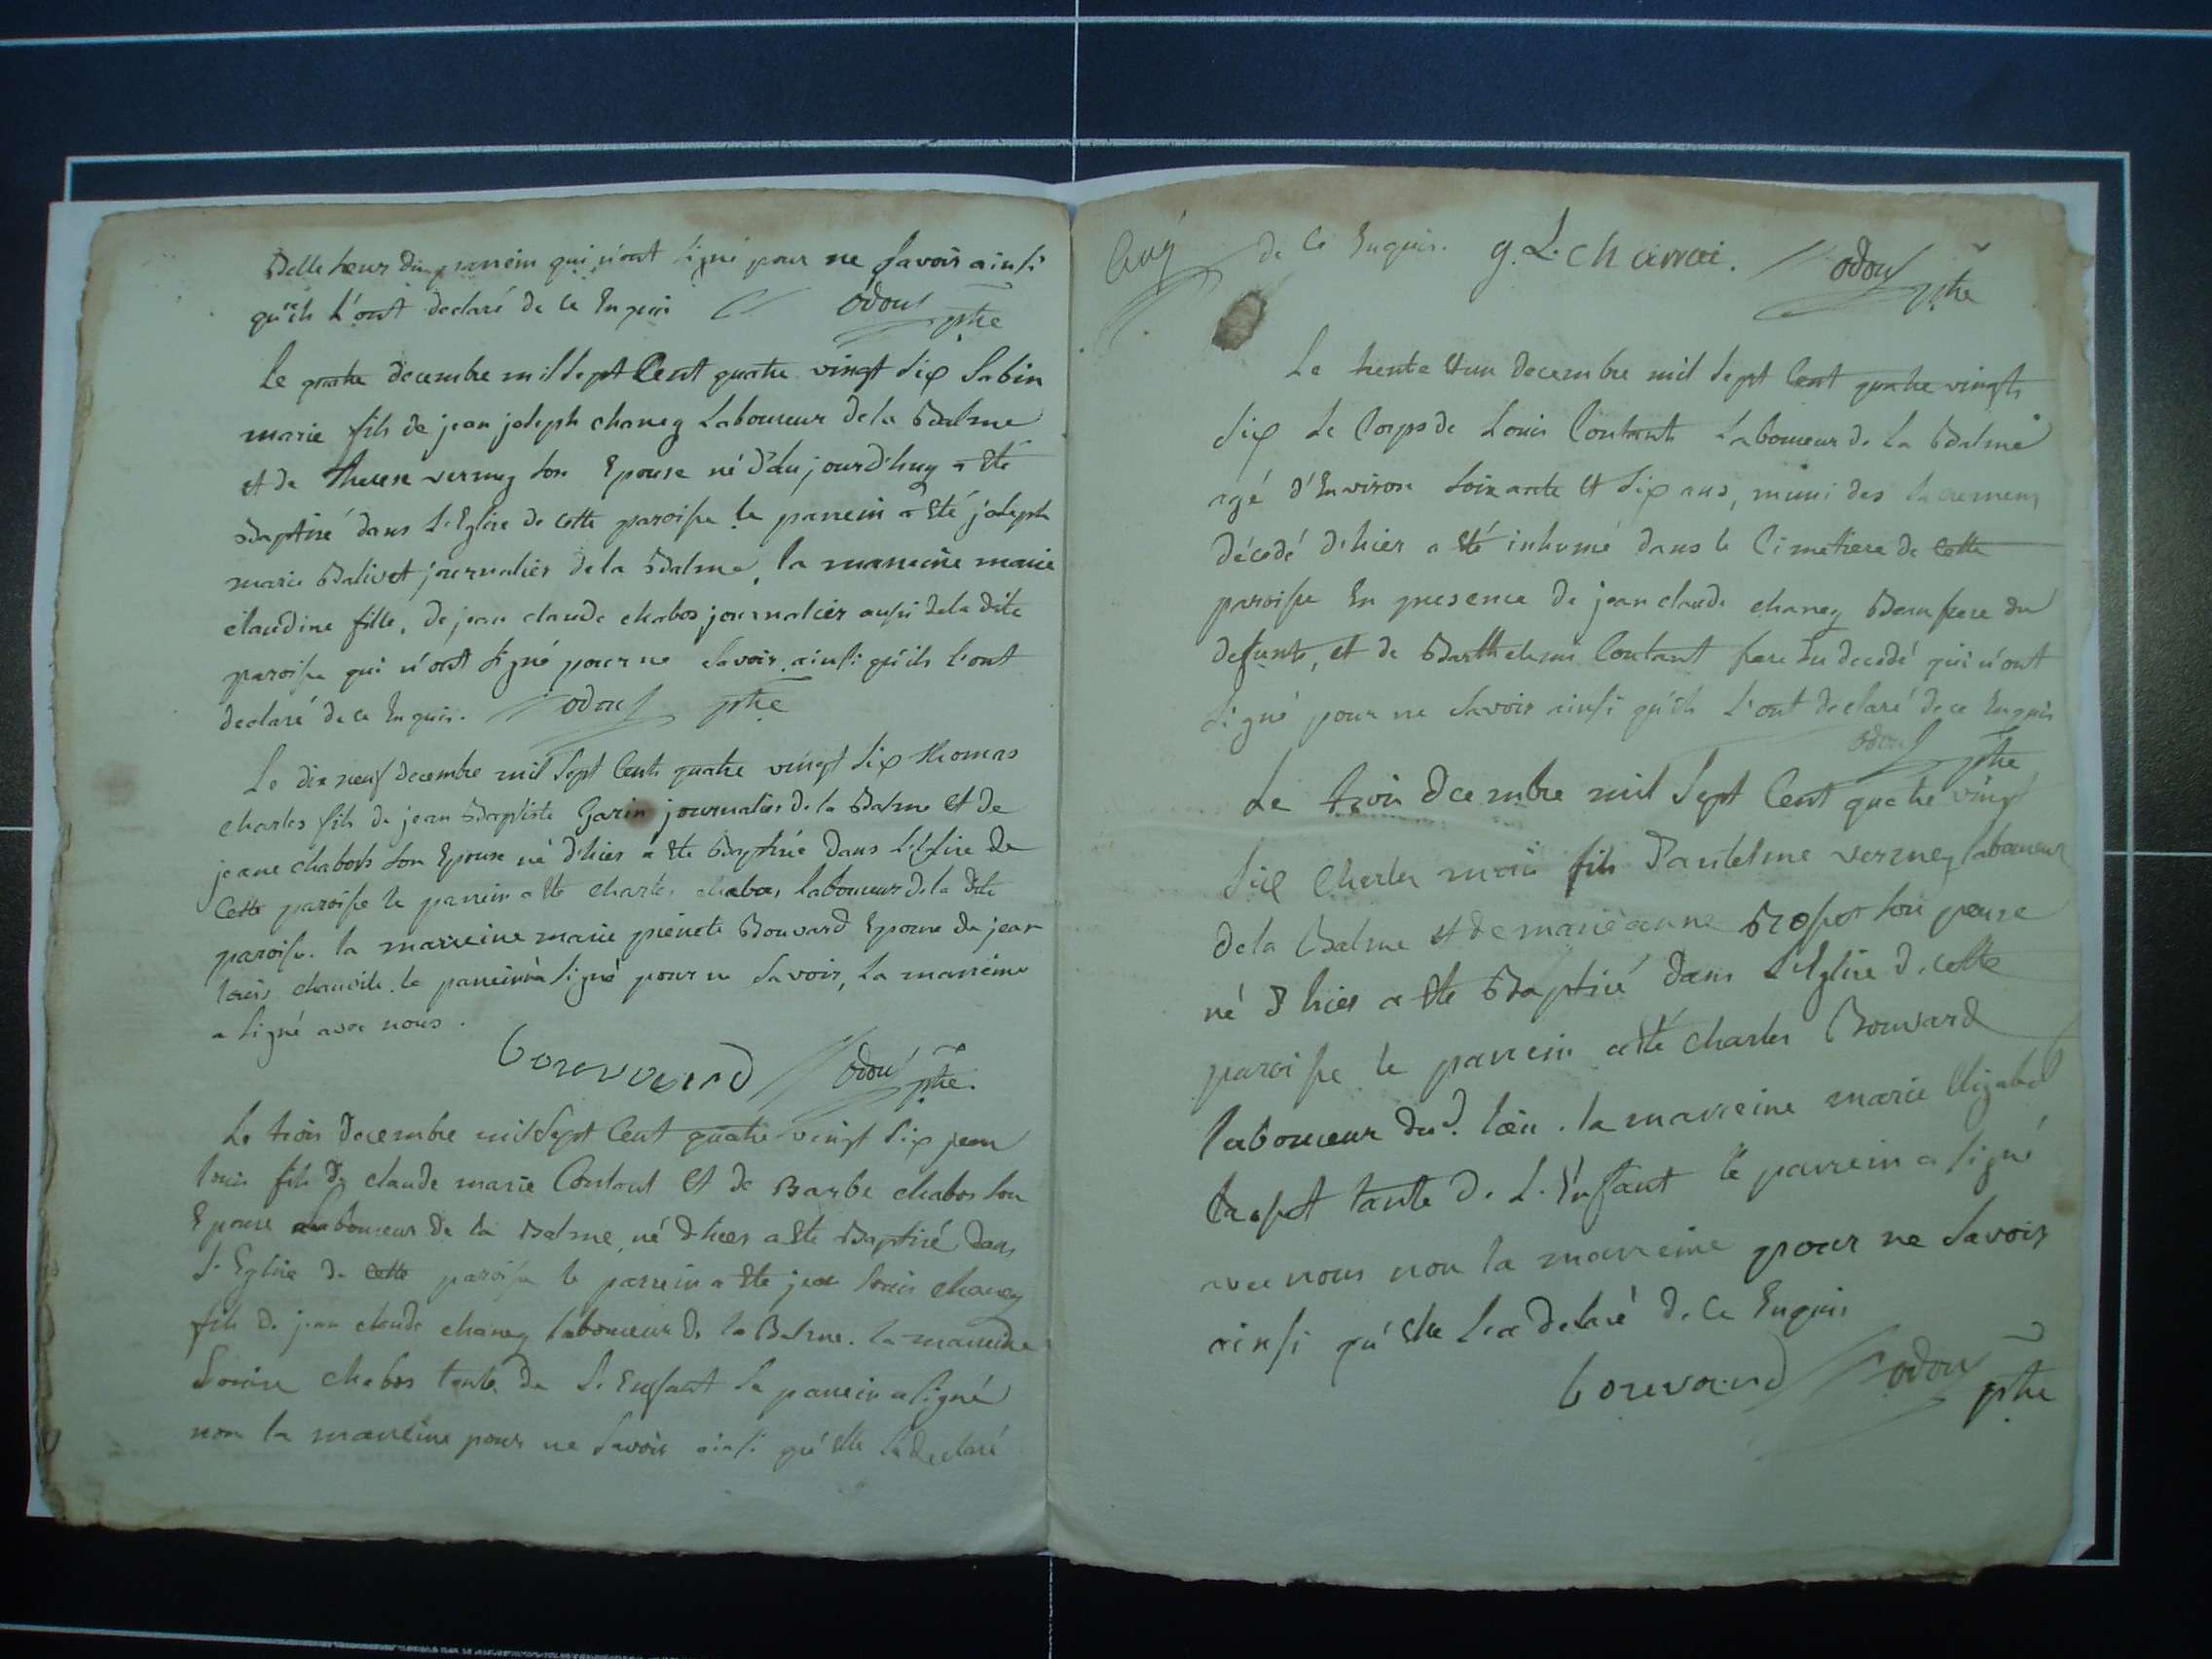 Belle sœur du parrein qui n'ont signé pour ne savoir ainsi
qu'ils l'ont declaré de ce Enquis odou ptre
Le quatre decembre mil sept Cent quatre vingt six Sabin
marie fils de jean joseph chaney Laboureur de la Balme
et de therese verney son Epouse né d'du jourd'huy a Eté
Baptisé dans L'Eglise de cette paroisse le parrein a Eté joseph
marie Balivet journalier de la Balme, la marreine marie
claudine fille, de jean claude chabos journalier aussi de la dite
paroisse qui n'ont signé pour ne savoir ainsi qu'ils l'ont
declaré de ce Enquis. odou ptre
Le dix neuf decembre mil sept Cent quatre vingt six thomas
charles fils de jean Baptiste Garin journalier de la Balme et de
jeane chabos son Epouse né d'hier a Ete Baptisé dans L'Eglise de
Cette paroisse le parrein a Ete charles chabos laboureur de la dite
paroisse. la marreine marie pierrete Bouvard Epouse de jean
louis le parrein n'a signé pour ne savoir, la marreine
a signé avec nous.
bouvard odou ptre.
Le trois decembre mil sept Cent quatre vingt six jean
louis fils de claude marie Contant et de Barbe chabos son
Epouse laboureur de la Balme, né d'hier a Ete Baptisé dans
L'Eglise de Cette paroisse le parrein a Ete jean louis chaney
fils de jean claude chaney laboureur de la Balme. la marreine
Louise chabos tante de L'Enfant Le parrein a signé
non la marreine pour ne savoir ainsi qu'elle la declaré
de ce Enquis. odou ptre
Le trente et un decembre mil sept Cent quatre vingts
six Le Corps de Louis Contant Laboureur de La Balme
agé d'Environ soixante et six ans, muni des sacremens
décedé d'hier a Eté inhumé dans le Cimetiere de Cette
paroisse En presence de jean claude chaney Beau frere du
defunts, et de Barthelemi Contant frere du decedé qui n'ont
signé pour ne savoir ainsi qu'ils l'ont declaré de ce Enquis
odou ptre
Le trois decembre mil sept Cent quatre vingt
six Charles marie fils d'antelme verney laboureur
de la Balme et de marie anne son pouse
né d'hier a Ete Baptisé dans L'Eglise de cette
paroisse le parrein a Eté charles Bouvard
laboureur dud. lieu. la marreine marie Elizabet
tante de L'Enfant le parrein a signé
avec nous non la marreine pour ne savoir
ainsi qu'elle l'a declaré de ce Enquis
bouvard odou ptre